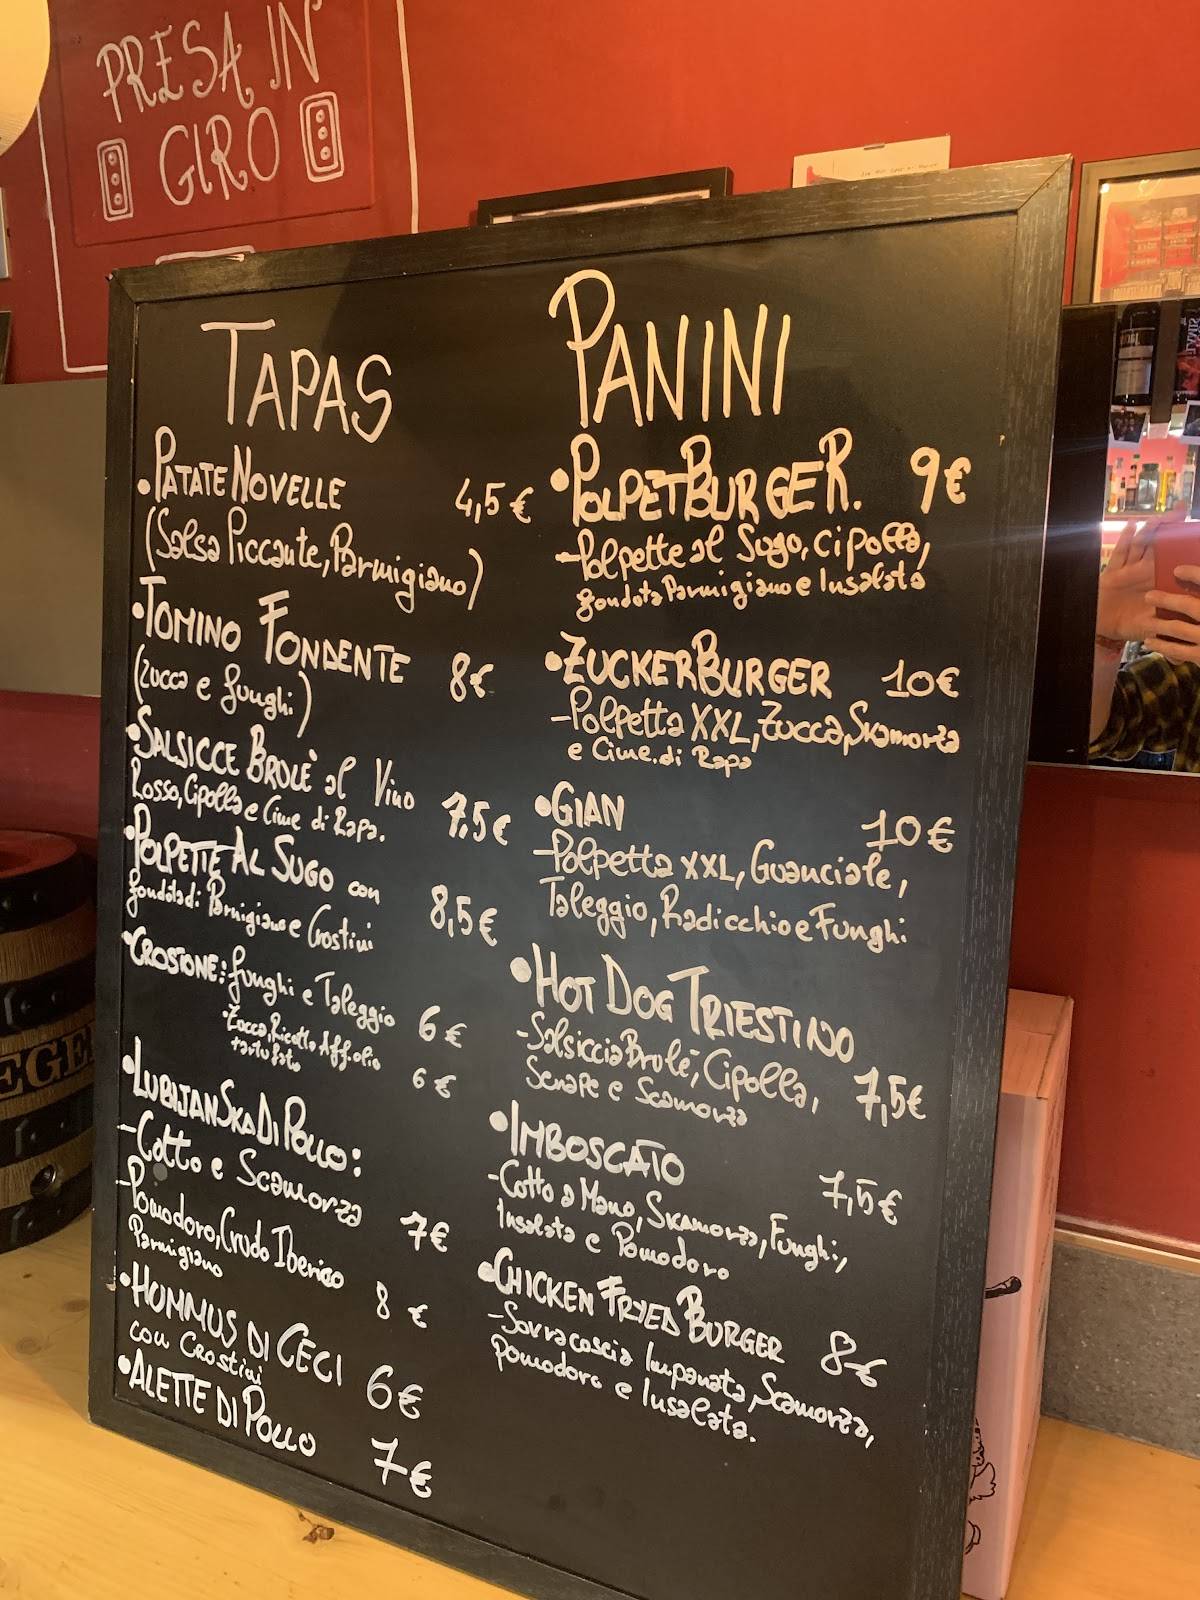 PRESA IN
GIRO
TAPAS
•PATATE NOVELLE 4,5€
(Salsa Piccante, Parmigiano)
•TOMINO FONDENTE 8€
(zucca e funghi)
•SALSICCE BROLÈ al Vino
Rosso, Cipolla e Cime di Rapa. 7,5€
•POLPETTE AL SUGO con
fonduta di Parmigiano e Crostini 8,5€
•CROSTONE: funghi e Taleggio 6€
•Zucca, Ricotta Aff., olio
tartufato 6€
•LUBIJANSKA DI POLLO:
-Cotto e Scamorza 7€
-Pomodoro, Crudo Iberico
Parmigiano 8 €
•HUMMUS DI CECI
con Crostini 6€
•ALETTE DI POLLO 7€
PANINI
•POLPETBURGER. 9€
-Polpette al Sugo, Cipolla,
fonduta Parmigiano e Insalata
•ZUCKERBURGER 10€
-Polpetta XXL, Zucca, Skamorza
e Cime di Rapa
•GIAN 10€
-Polpetta XXL, Guanciale,
Taleggio, Radicchio e Funghi
•HOT DOG TRIESTINO
-Salsiccia Brolè, Cipolla,
Senape e Scamorza 7,5€
•IMBOSCATO 7,5€
-Cotto a Mano, Skamorza, Funghi,
Insalata e Pomodoro
•CHICKEN FRYED BURGER 8€
-Sovracoscia Impanata, Scamorza,
Pomodoro e Insalata.